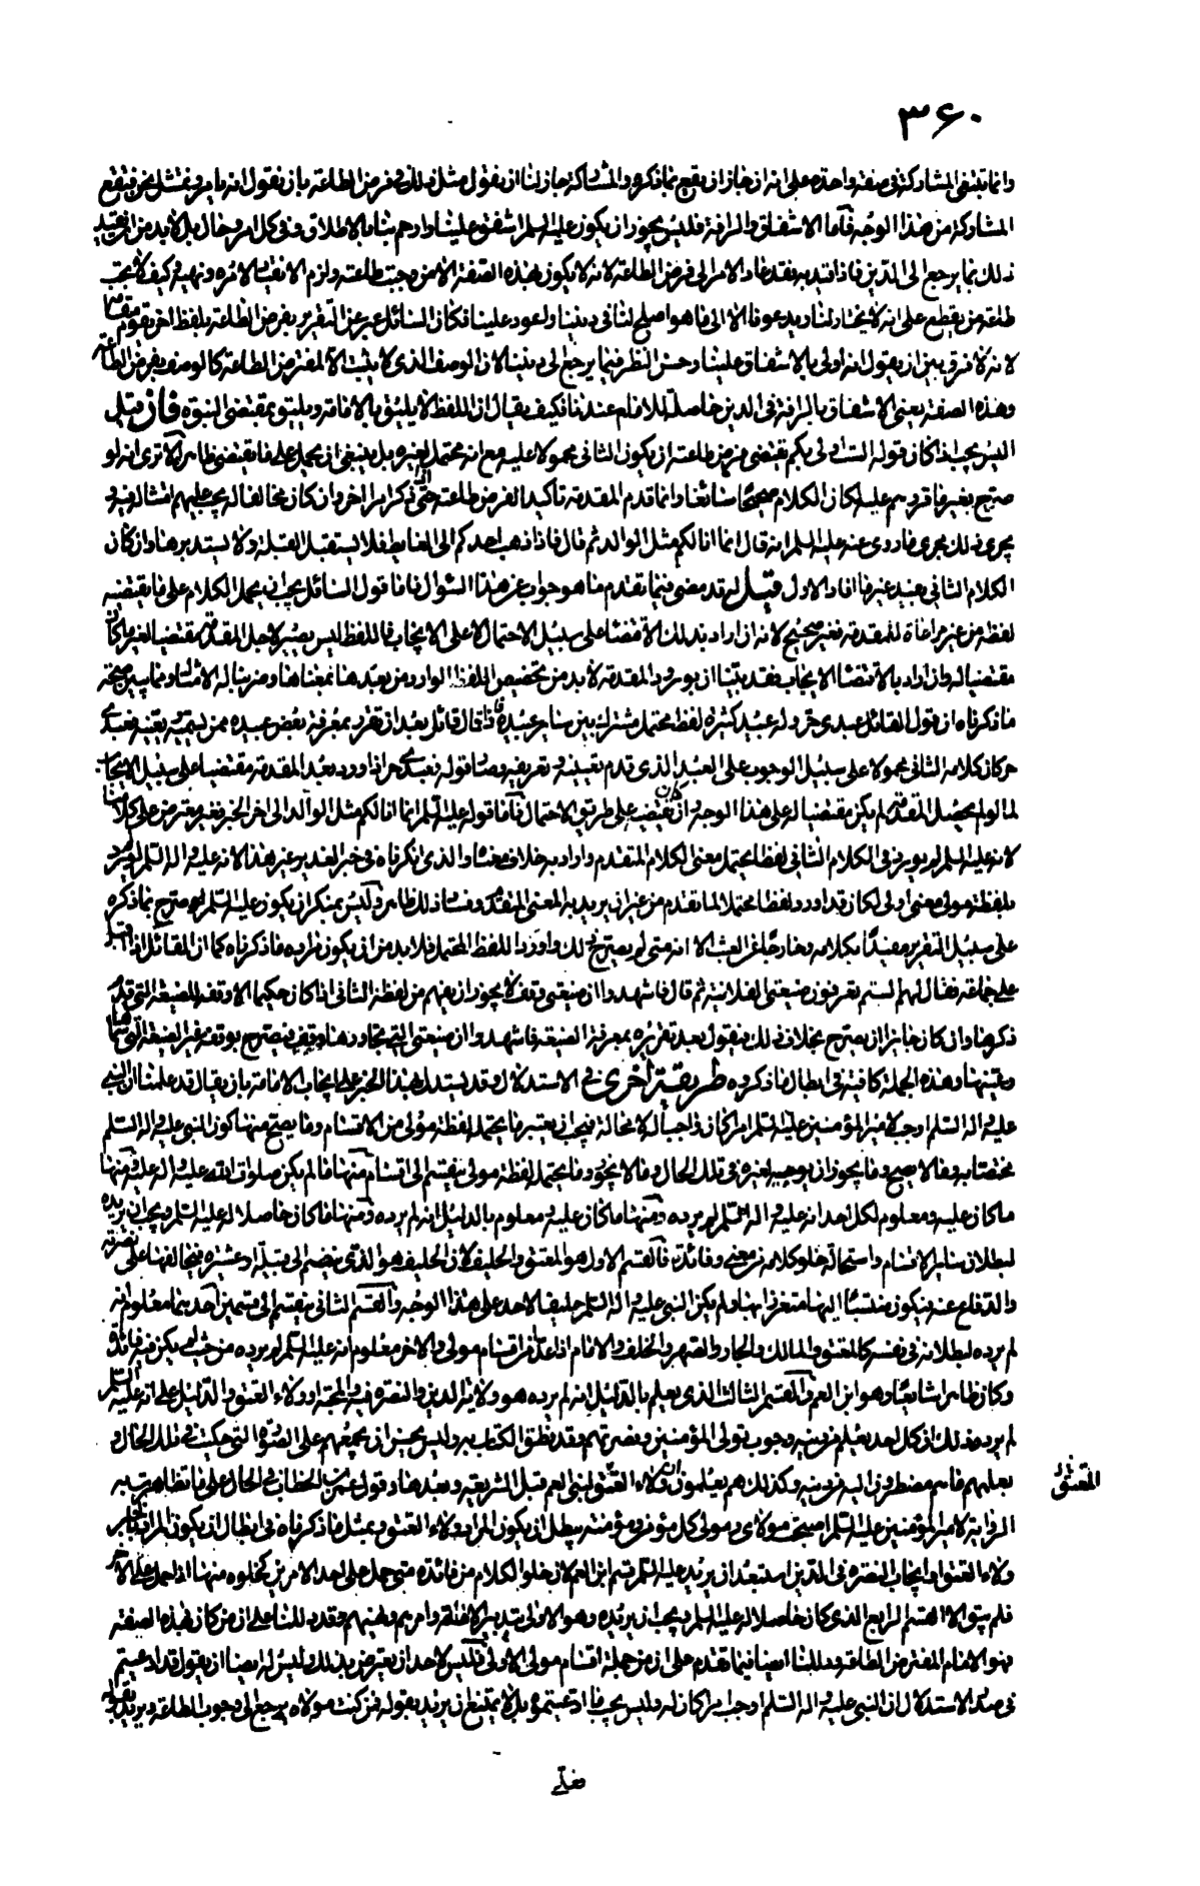 ٣۶٠
وانما تنتفى المشاركة فى صفة واحدة على انه ان جاز ان يقع بما ذكروه المشاركة جاز لنا ان نقول مثل ذلك فى فرض الطاعة بان نقول انه يامر ويمتثل فيقع
المشاركة من هذا الوجه فأما الاشفاق والرافة فليس يجوز ان يكون عليه السلم اشفق علينا وارحم بنا بالاطلاق وفى كل امر وحال بل لا بد من ان يقيد
ذلك بما يرجع الى الدين فاذا قيد به فقد عاد الامر الى فرض الطاعة لانه لا يكون بهذه الصفة الا من وجبت طاعته ولزم الانقياد لامره ونهيه وكيف لا تجب
طاعة من يقطع على انه لا يختار لنا ويدعونا الا الى ما هو اصلح لنا فى ديننا واعود علينا فكان السائل عبر عن التقرير بفرض الطاعة بلفظ اخر يقوم مقامها
لانه لا فرق بين ان يقول انه اولى بالاشفاق علينا وحسن النظر فيما يرجع الى ديننا لان الوصف الذى لا يثبت الا لمفترض الطاعة كالوصف بفرض الطاعة
وهذه الصفة يعنى الاشفاق والرافة فى الدين حاصلة للامام عندنا فكيف يقال ان اللفظ لا يليق بالامامة ويليق بمقتضى النبوة فان قيل
اليس يجب اذا كان قوله الست اولى بكم يقتضى فرض طاعته ان يكون الثانى محمولا عليه مع انه محتمل لغيره بل ينبغى ان يحمل على ما يقتضى ظاهره الا ترى انه لو
صرح بغير ما قررهم عليه لكان الكلام صحيحا سائغا وانما قدم المقدمة تاكيدا لفرض طاعته حتى ذكر امرا اخر وان كان مخالفا له يجب عليهم امتثاله فيه و
يجرى ذلك مجرى ما روى عنه عليه السلم انه قال انما انا لكم مثل الوالد ثم قال فاذا ذهب احدكم الى الغايط فلا يستقبل القبلة ولا يستدبرها وان كان
الكلام الثانى يفيد غير ما افاد الاول قيل له قد مضى فيما تقدم ما هو جواب عن هذا السؤال فاما قول السائل يجب ان يحمل الكلام على ما يقتضيه
لفظه من غير مراعاة للمقدمة فغير صحيح لانه ان اراد بذلك الاقتضاء على سبيل الاحتمال لا على الايجاب فاللفظ ليس يصير لاجل المقدمة مقتضيا لغير ما كان
مقتضيا له وان اراد بالاقتضاء الايجاب فقد بينا ان بورود المقدمة لا بد من تخصيص اللفظ الوارد من بعدها بمعناها وضربنا له الامثال ومما يبين صحة
ما ذكرناه ان قول القائل عبدى حر وله عبيد كثيرة لفظ محتمل مشترك بين سائر عبيده فاذا قال قائل بعد ان تفرد بمعرفة بعض عبيده ممن يسميه بعينه فعبدى
حر كان كلامه الثانى محمولا على سبيل الوجوب على العبد الذى تقدم تعيينه وتعريفه وصار قوله فعبدى حر اذا ورد بعد المقدمة مقتضيا على سبيل الايجاب
لما لو لم يحصل المقدمة لم يكن مقتضيا له على هذا الوجه وان كان يقتضيه على طريق الاحتمال فأما قوله عليه السلم انما انا لكم مثل الوالد الى اخر الخبر فغير معترض على كلامنا
لانه عليه السلم لم يورد فى الكلام الثانى لفظا يحتمل معنى الكلام المتقدم واراد به خلاف معناه والذى انكرناه فى خبر الغدير غير هذا لانه عليه واله السلم لو لم يرد
بلفظة مولى معنى اولى لكان قد اورد لفظا محتملا لما تقدم من غير ان يريد به المعنى المتقدم وفساد ذلك ظاهر وليس بمنكر ان يكون عليه السلم لو صرح بما ذكره
على سبيل التقرير مفيدا بكلامه وخارجا عن العبث الا انه متى لم يصرح بذلك واورد اللفظ المحتمل فلا بد من ان يكون مراده ما ذكرناه كما ان القائل اذا اقبل
على جماعة فقال لهم الستم تعرفون ضيعتى الفلانية ثم قال فاشهدوا ان ضيعتى وقف لا يجوز ان يفهم من لفظة الثانى اذا كان حكيما الا وقفه للضيعة التى قدم
ذكرها وان كان جايزا ان يصرح بخلاف ذلك فيقول بعد تقريره بمعرفة الضيعة فاشهدوا ان ضيعتى التى تجاورها وقف فيصرح بوقف غير الضيعة التى سماها
وعينها وهذه الجملة كافية فى ابطال ما ذكروه طريقة اخرى فى الاستدلال وقد يستدل بهذا الخبر على ايجاب الامامة بان يقال قد علمنا ان النبى
عليه واله السلم اوجب لامير المؤمنين عليه السلم امرا كان واجبا له لا محالة فيجب ان يعتبر ما يحتمله لفظة مولى من الاقسام وما يصح منها كون النبى عليه واله السلم
مختصا به وما لا يصح وما يجوز ان يوجبه لغيره فى تلك الحال وما لا يجوز وما يحتمله لفظة مولى ينقسم الى اقسام منها ما لم يكن صلوات الله عليه واله عليه ومنها
ما كان عليه ومعلوم لكل احد انه عليه واله السلم لم يرده ومنها ما كان عليه ومعلوم بالدليل انه لم يرده ومنها ما كان حاصلا له عليه السلم ويجب ان يريده
لبطلان سائر الاقسام واستحالة خلو كلامه من معنى وفائدة فالقسم الاول هو المعتق والحليف لان الحليف هو الذى ينضم الى قبيلة او عشيرة فيحالفها على نصرته
والدفاع عنه فيكون منتسبا اليها متعززا بها ولم يكن النبى عليه واله السلم حليفا لاحد على هذا الوجه والقسم الثانى ينقسم الى قسمين احدهما معلوم انه
لم يرده لبطلانه فى نفسه كالمعتق والمالك والجار والصهر والخلف والامام اذا عد من اقسام مولى والاخر معلوم انه عليه السلم لم يرده من حيث لم يكن فيه فائدة
وكان ظاهرا شايعا وهو ابن العم والقسم الثالث الذى يعلم بالدليل انه لم يرده هو ولاية الدين والنصرة فيه والمحبة او ولاء العتق والدليل على انه عليه السلم
لم يرد ذلك ان كل احد يعلم من دينه وجوب تولى المؤمنين ونصرتهم وقد نطق الكتاب به وليس يحسن ان يجمعهم على الصورة التى حكيت فى تلك الحال و
يعلمهم ما هم مضطرون اليه من دينه وكذلك هم يعلمون ان ولاء العتق لبنى العم قبل الشريعة وبعدها وقول عمر بن الخطاب فى الحال على ما تظاهرت به
الرواية لامير المؤمنين عليه السلم اصبحت مولاى ومولى كل مؤمن ومؤمنة يبطل ان يكون المراد ولاء العتق وبمثل ما ذكرناه فى ابطال ان يكون المراد بالخبر
ولاء العتق او ايجاب النصرة فى الدين استبعد ان يريد عليه السلم قسم ابن العم لان خلو الكلام من فائدة متى حمل على احد الامرين كخلوه منها اذا حمل على الاخر
فلم يبق الا القسم الرابع الذى كان حاصلا له عليه السلم ويجب ان يريده وهو الاولى بتدبير الامة وامرهم ونهيهم وقد دللنا على ان من كان بهذه الصفة
فهو الامام المفترض الطاعة ودللنا ايضا فيما تقدم على ان من جملة اقسام مولى الاولى فليس لاحد ان يعترض بذلك وليس له ايضا ان يقول قد ادعيتم
فى صدر الاستدلال ان النبى عليه واله السلم اوجب امرا كان له وليس يجب ما ادعيتموه بل لا يمتنع ان يريد بقوله فمن كنت مولاه ما يرجع الى وجوب الطاعة ويريد بقوله
المعتق
فعلى